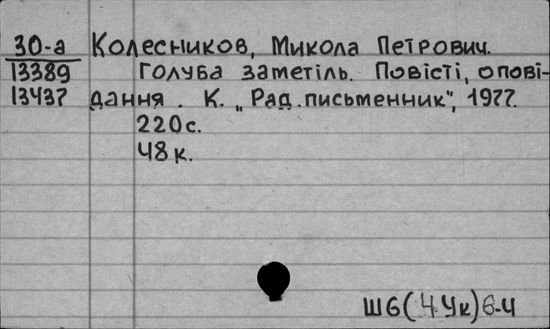 30-а Колесников, Микола Петрович.
13389 Голуба заметіль. Повісті, опові-
13437 дання. К. „Рад.письменник", 1977.
220с.
48к.
Ш6(4Ук)6-4